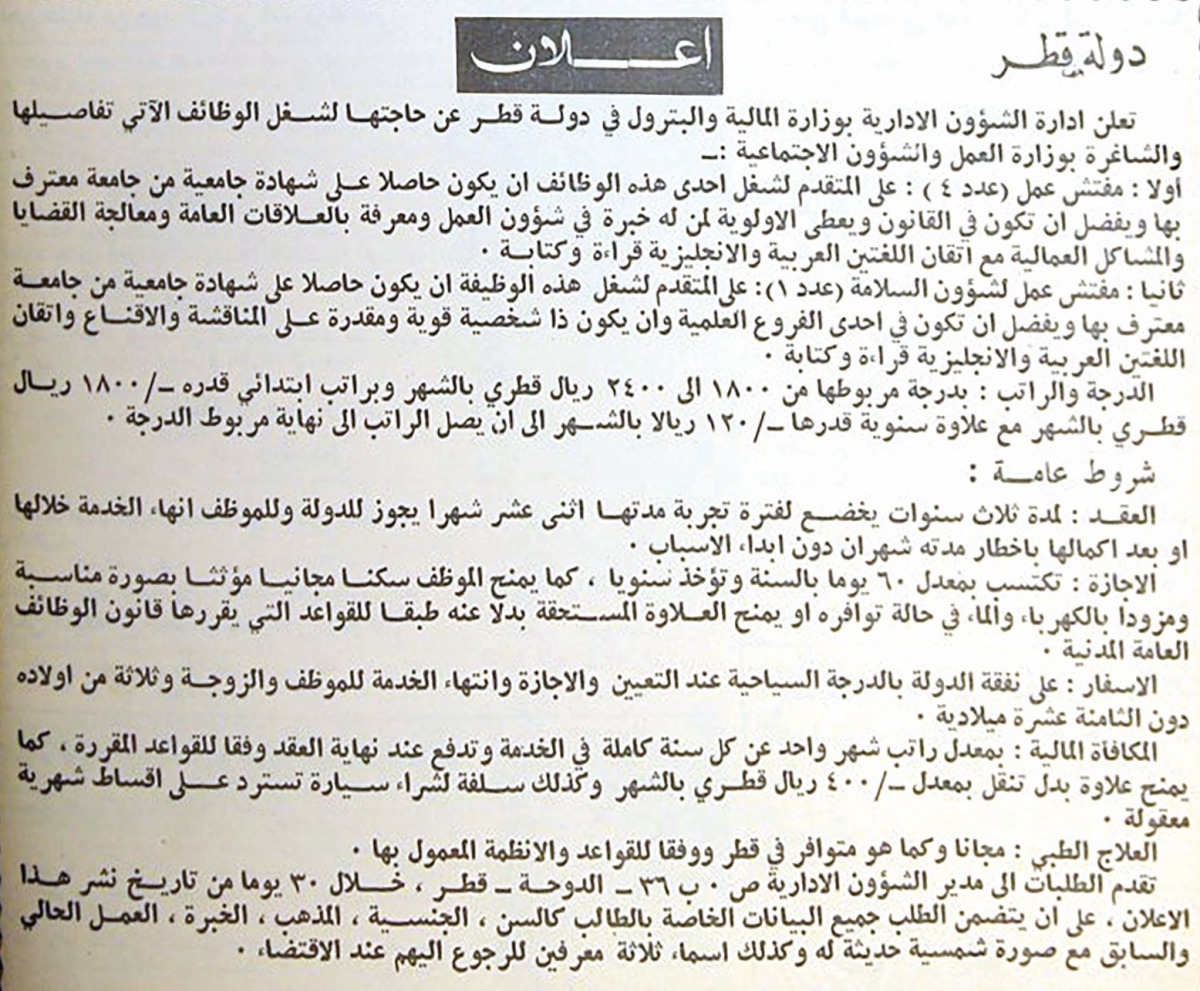 دولة قطر
اعـــلان
تعلن ادارة الشؤون الادارية بوزارة المالية والبترول في دولة قطر عن حاجتها لشغل الوظائف الآتي تفاصيلها
والشاغرة بوزارة العمل والشؤون الاجتماعية :ـ
أولا : مفتش عمل (عدد ٤) : على المتقدم لشغل احدى هذه الوظائف ان يكون حاصلا على شهادة جامعية من جامعة معترف
بها ويفضل ان تكون في القانون ويعطى الاولوية لمن له خبرة في شؤون العمل ومعرفة بالعلاقات العامة ومعالجة القضايا
والمشاكل العمالية مع اتقان اللغتين العربية والانجليزية قراءة وكتابة ٠
ثانيا : مفتش عمل لشؤون السلامة (عدد ١): على المتقدم لشغل هذه الوظيفة ان يكون حاصلا على شهادة جامعية من جامعة
معترف بها ويفضل ان تكون في احدى الفروع العلمية وان يكون ذا شخصية قوية ومقدرة على المناقشة والاقناع واتقان
اللغتين العربية والانجليزية قراءة وكتابة ٠
الدرجة والراتب : بدرجة مربوطها من ١٨٠٠ الى ٢٤٠٠ ريال قطري بالشهر وبراتب ابتدائي قدره ـ/١٨٠٠ ريال
قطري بالشهر مع علاوة سنوية قدرها ـ/١٢٠ ريالا بالشهر الى ان يصل الراتب الى نهاية مربوط الدرجة ٠
شروط عامة :
العقد : لمدة ثلاث سنوات يخضع لفترة تجربة مدتها اثنى عشر شهرا يجوز للدولة وللموظف انهاء الخدمة خلالها
او بعد اكمالها باخطار مدته شهران دون ابداء الاسباب ٠
الاجازة : تكتسب بمعدل ٦٠ يوما بالسنة وتؤخذ سنويا ، كما يمنح الموظف سكنا مجانيا مؤثثا بصورة مناسبة
ومزودا بالكهرباء والماء في حالة توافره او يمنح العلاوة المستحقة بدلا عنه طبقا للقواعد التي يقررها قانون الوظائف
العامة المدنية ٠
الاسفار : على نفقة الدولة بالدرجة السياحية عند التعيين والاجازة وانتهاء الخدمة للموظف والزوجة وثلاثة من اولاده
دون الثامنة عشرة ميلادية ٠
المكافاة المالية : بمعدل راتب شهر واحد عن كل سنة كاملة في الخدمة وتدفع عند نهاية العقد وفقا للقواعد المقررة ، كما
يمنح علاوة بدل تنقل بمعدل ـ/٤٠٠ ريال قطري بالشهر وكذلك سلفة لشراء سيارة تسترد على اقساط شهرية
معقولة ٠
العلاج الطبي : مجانا وكما هو متوافر في قطر ووفقا للقواعد والانظمة المعمول بها ٠
تقدم الطلبات الى مدير الشؤون الادارية ص ٠ ب ٣٦ ـ الدوحة ـ قطر ، خلال ٣٠ يوما من تاريخ نشر هذا
الاعلان ، على ان يتضمن الطلب جميع البيانات الخاصة بالطالب كالسن ، الجنسية ، المذهب ، الخبرة ، العمل الحالي
والسابق مع صورة شمسية حديثة له وكذلك اسماء ثلاثة معرفين للرجوع اليهم عند الاقتضاء ٠